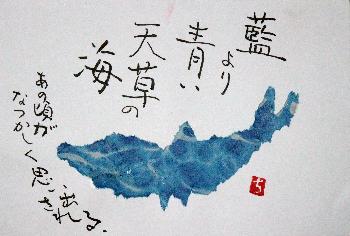 藍
より
青い
天草の
海
あの頃が
なつかしく思い出
される.
ち